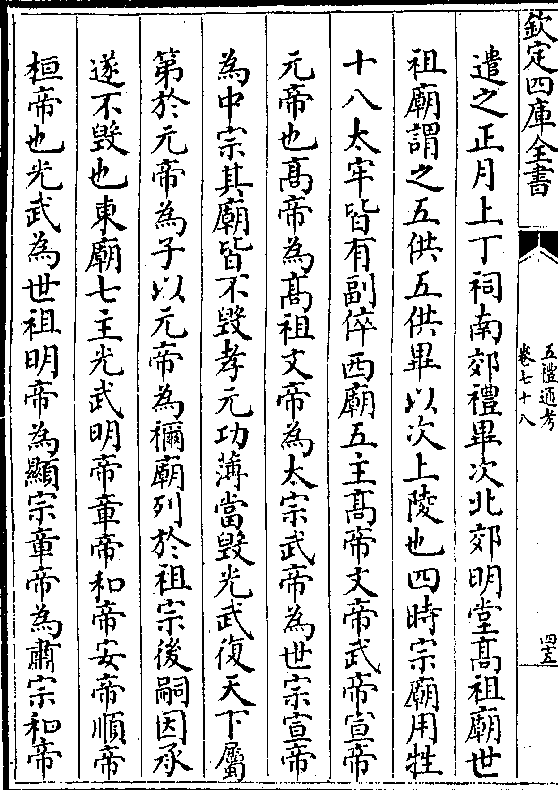 欽定四庫全書
五禮通考
卷七十八
四五
遣之正月上丁祠南郊禮畢次北郊明堂髙祖廟世
祖廟謂之五供五供畢以次上陵也四時宗廟用牲
十八太牢皆有副倅西廟五主髙帝文帝武帝宣帝
元帝也髙帝為髙祖文帝為太宗武帝為世宗宣帝
為中宗其廟皆不毁孝元功薄當毁光武復天下屬
第於元帝為子以元帝為禰廟列於祖宗後嗣因承
遂不毁也東廟七主光武明帝章帝和帝安帝順帝
桓帝也光武為世祖明帝為顯宗章帝為肅宗和帝